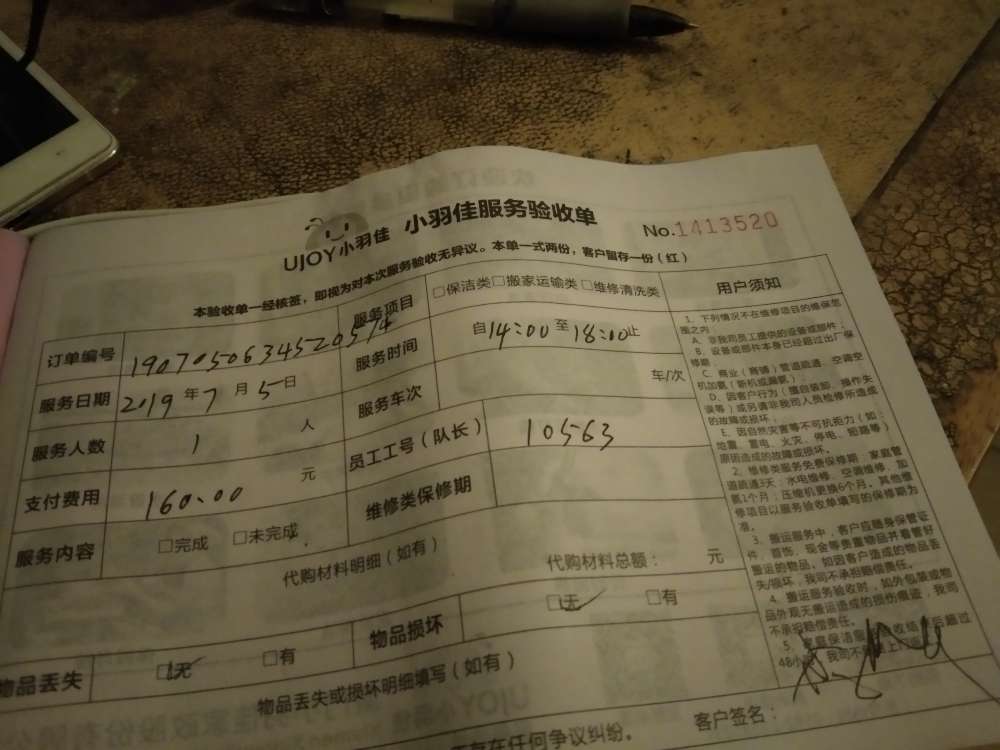 UJOY小羽佳 小羽佳服务验收单
No.1413520
本验收单一经核签,即视为对本次服务验收无异议。本单一式两份,客户留存一份(红)
订单编号 19070506345520574
服务项目 □保洁类□搬家运输类□维修清洗类
服务日期 2019年7月5日
服务时间 自14:00至18:00止
服务人数 1 人
服务车次 车/次
支付费用 160.00 元
员工工号(队长) 10563
服务内容 □完成 □未完成
维修类保修期
代购材料明细(如有)
代购材料总额: 元
物品丢失 □无 □有
物品损坏 □无 □有
物品丢失或损坏明细填写(如有)
存在任何争议纠纷。
客户签名:
用户须知
1、下列情况不在维修项目的维保范
围之内
A、非我司员工提供的设备或部件;
B、设备或部件本身已经超过出厂保
修期
C、商业(商铺)管道疏通、空调空
机加氨(新机或漏氨);
D、因客户行为(擅自装卸、操作失
误等)或另请非我司人员检修所造成
的故障或损坏;
E、因自然灾害等不可抗拒力(如:
地震、雷电、火灾、停电、短路等)
原因造成的故障或损坏。
2、维修类服务免费保修期,家庭管
道疏通3天;水电维修、空调维修、加
氨1个月;压缩机更换6个月。其他维
修项目以服务验收单填写的保修期为
准。
3、搬运服务中,客户应随身保管证
件、首饰、现金等贵重物品并看管好
搬运的物品。如因客户造成的物品丢
失/损坏,我司不承担赔偿责任。
4、搬运服务验收时,如外包装或物
品外观无搬运造成的损伤痕迹,我司
不承担赔偿责任。
5、家庭保洁 验收结 后超过
48小 我司不 上门